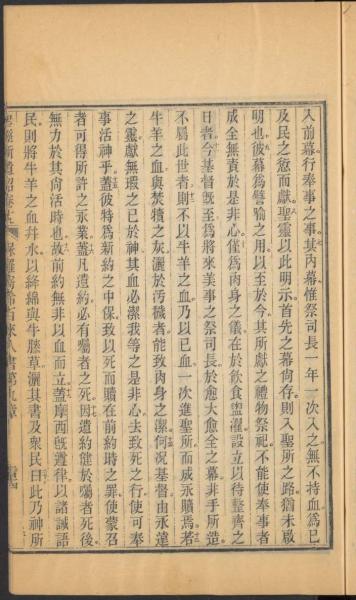 入前幕行奉事之事其內幕僅祭司長一年一次入之無不持血爲已
及民之愆而獻聖靈以此明示首先之幕尙存則入聖所之路猶未啟
明也彼幕爲譬喻之用以至於今其所獻之禮物祭祀不能使奉事者
成全無責於是非心僅爲肉身之儀在於飲食盥濯設立以待整齊之
日者今基督旣至爲將來美事之祭司長於愈大愈全之幕非手所造
不屬此世者則不以牛羊之血乃以己血一次進聖所而成永贖焉若
牛羊之血與焚犢之灰灑於汚穢者能致肉身之潔何况基督由永遠
之靈獻無瑕之己於神其血必潔我等之是非心去致死之行使可奉
事活神乎蓋彼特爲新約之中保致以死而贖在前約時之罪使蒙召
者可得所許之永業蓋凡遺約必有囑者之死因遺約僅於囑者死後
無力於其尙活時也故前約無非以血而立蓋摩西旣置律以諸誡語
民則將牛羊之血幷水以絳綿與牛膝草灑其書及衆民曰此乃神所
聖經新遺詔卷 保羅 希百來人書第九章